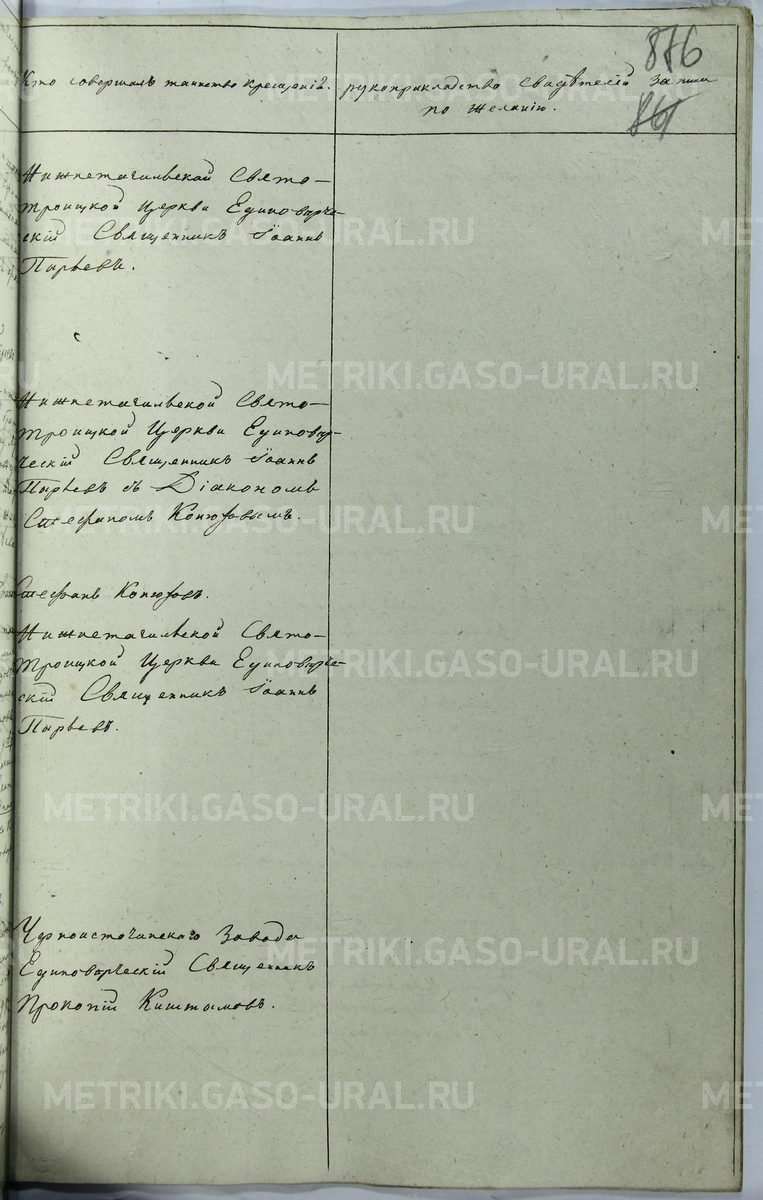 876
861
Кто совершалъ таинство крещенія.
рукоприкладство свидѣтелей записи
по желанію.
Нижнетагильской Свято-
троицкой Церкви Единовѣрче-
скій Священникъ Іоаннъ
Пырьевъ.
Нижнетагильской Свято-
троицкой Церкви Единовѣр-
ческій Священникъ Іоаннъ
Пырьевъ съ Діакономъ
Стефаномъ Конюховымъ.
Стефанъ Конюховъ.
Нижнетагильской Свято-
троицкой Церкви Единовѣрче-
скій Священникъ Іоаннъ
Пырьевъ.
Черноисточинскаго Завода
Единовѣрческій Священникъ
Прокопій Кыштымовъ.
METRIKI.GASO-URAL.RU
METRIKI.GASO-URAL.RU
METRIKI.GASO-URAL.RU
METRIKI.GASO-URAL.RU
METRIKI.GASO-URAL.RU
METRIKI.GASO-URAL.RU
METRIKI.GASO-URAL.RU